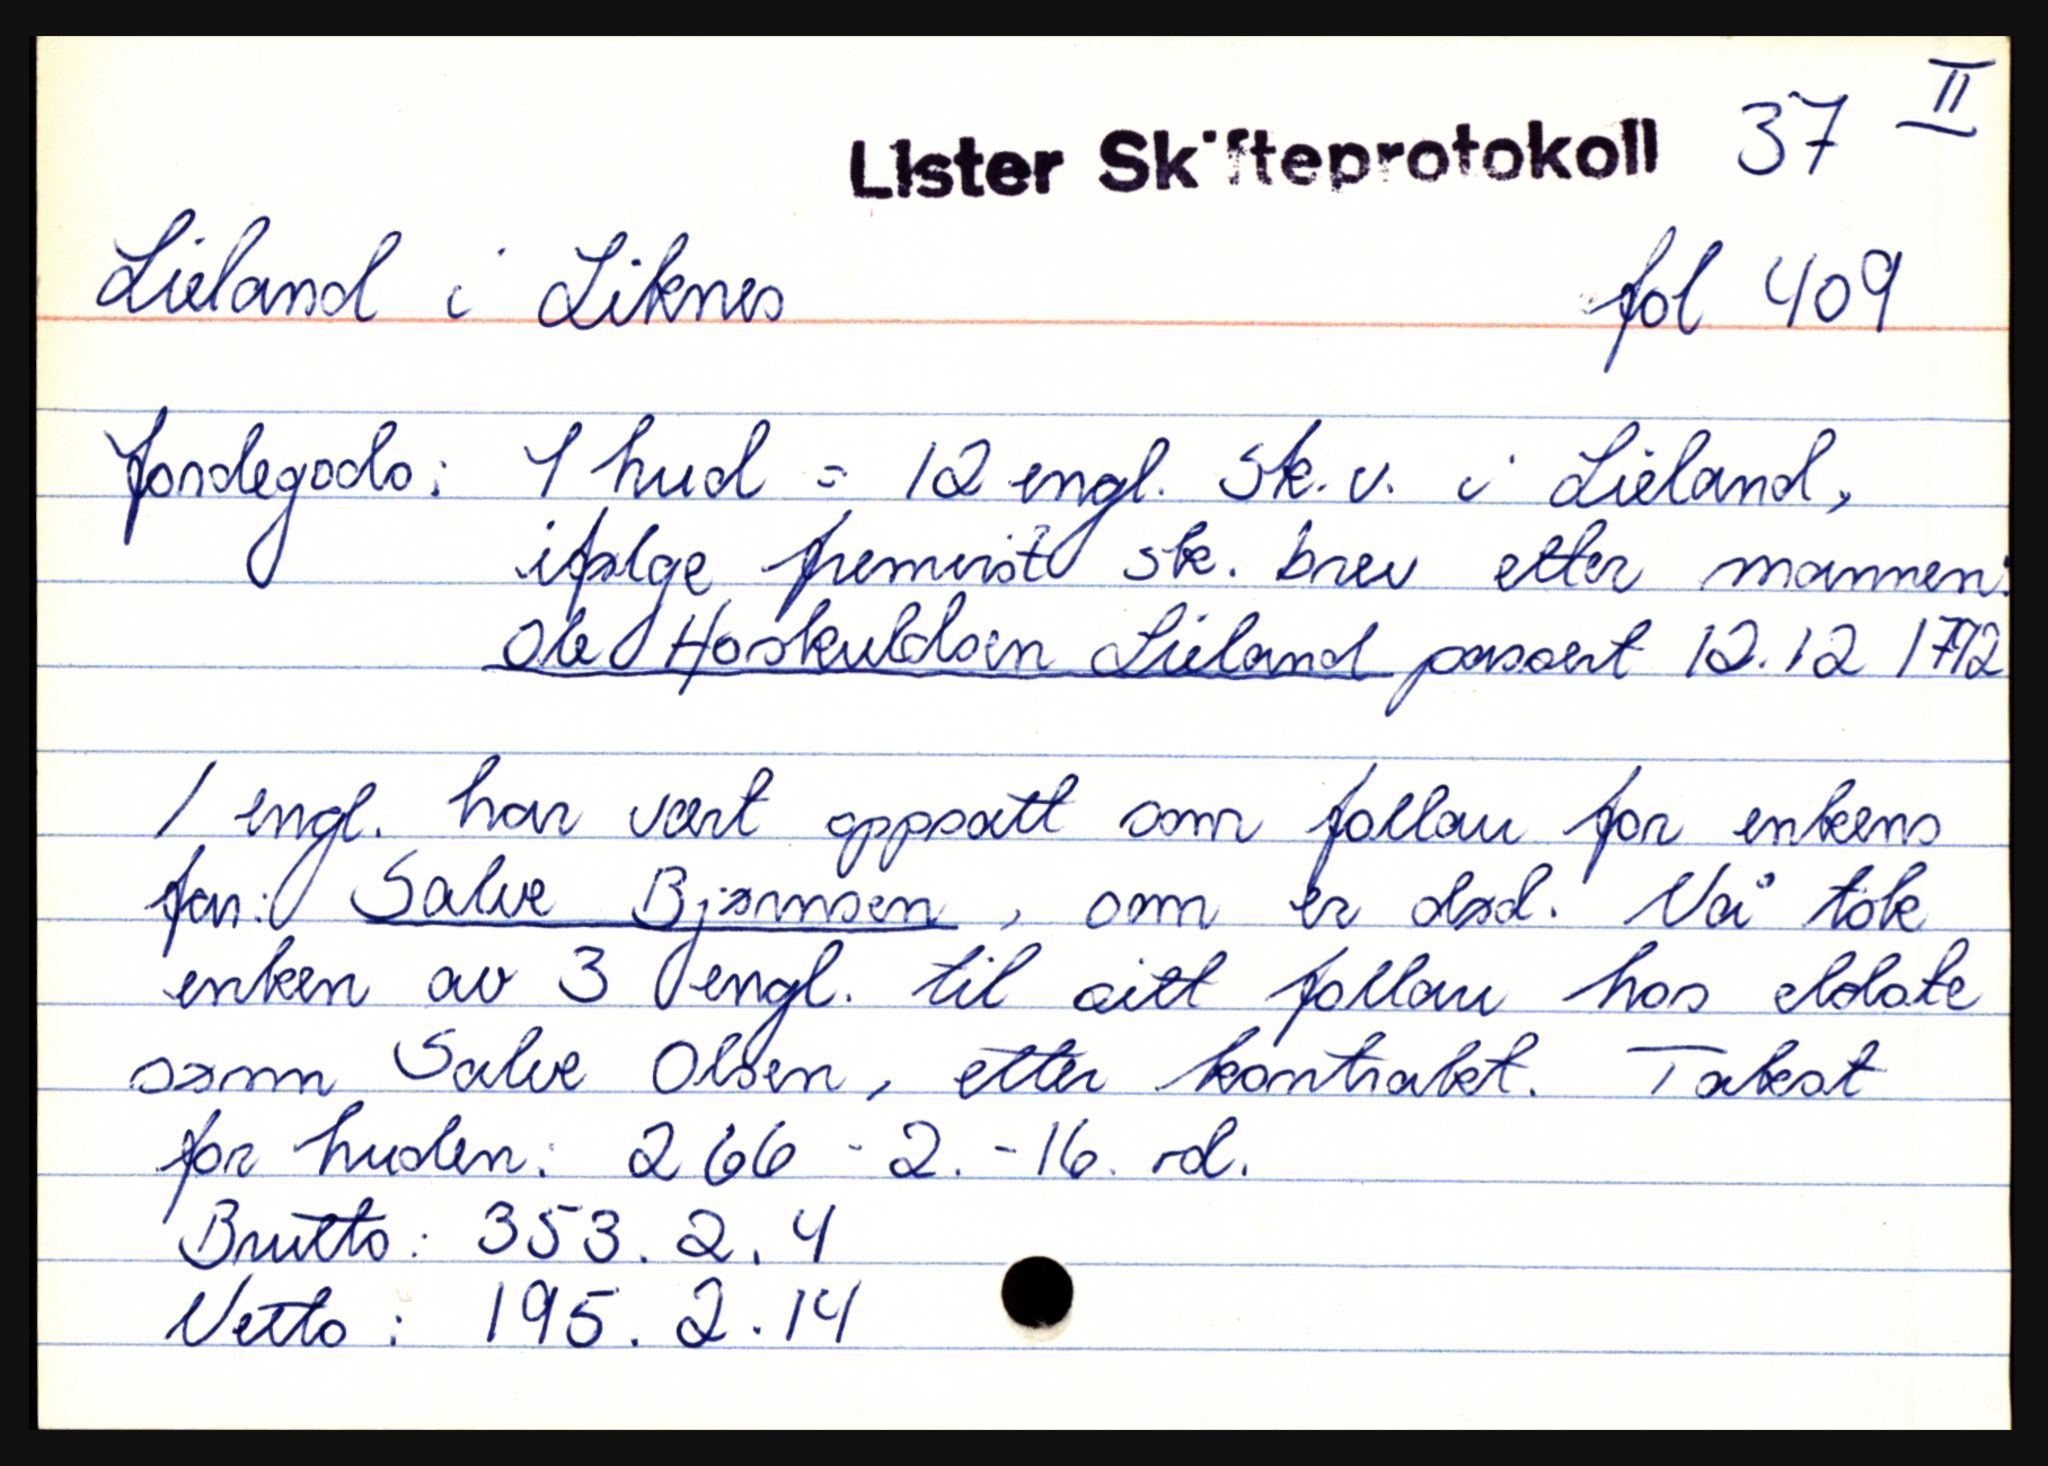 Lister Skifteprotokoll 37 II
Lieland i Liknes fol 409
Jordegods: 1 hud = 12 engl. sk. v. i Lieland,
ifølge fremvist sk. brev etter mannen:
Ole Hoskuldsen Lieland passert 12.12 1792
1 engl. har vært oppsatt som follau for enkens
far: Salve Bjørnsen, som er død. Nå tok
enken av 3 engl. til sitt follau hos eldste
sønn Salve Olsen, etter kontrakt. Takst
for huden: 266 - 2. - 16. rd.
Brutto: 353. 2. 4
Netto: 195. 2. 14